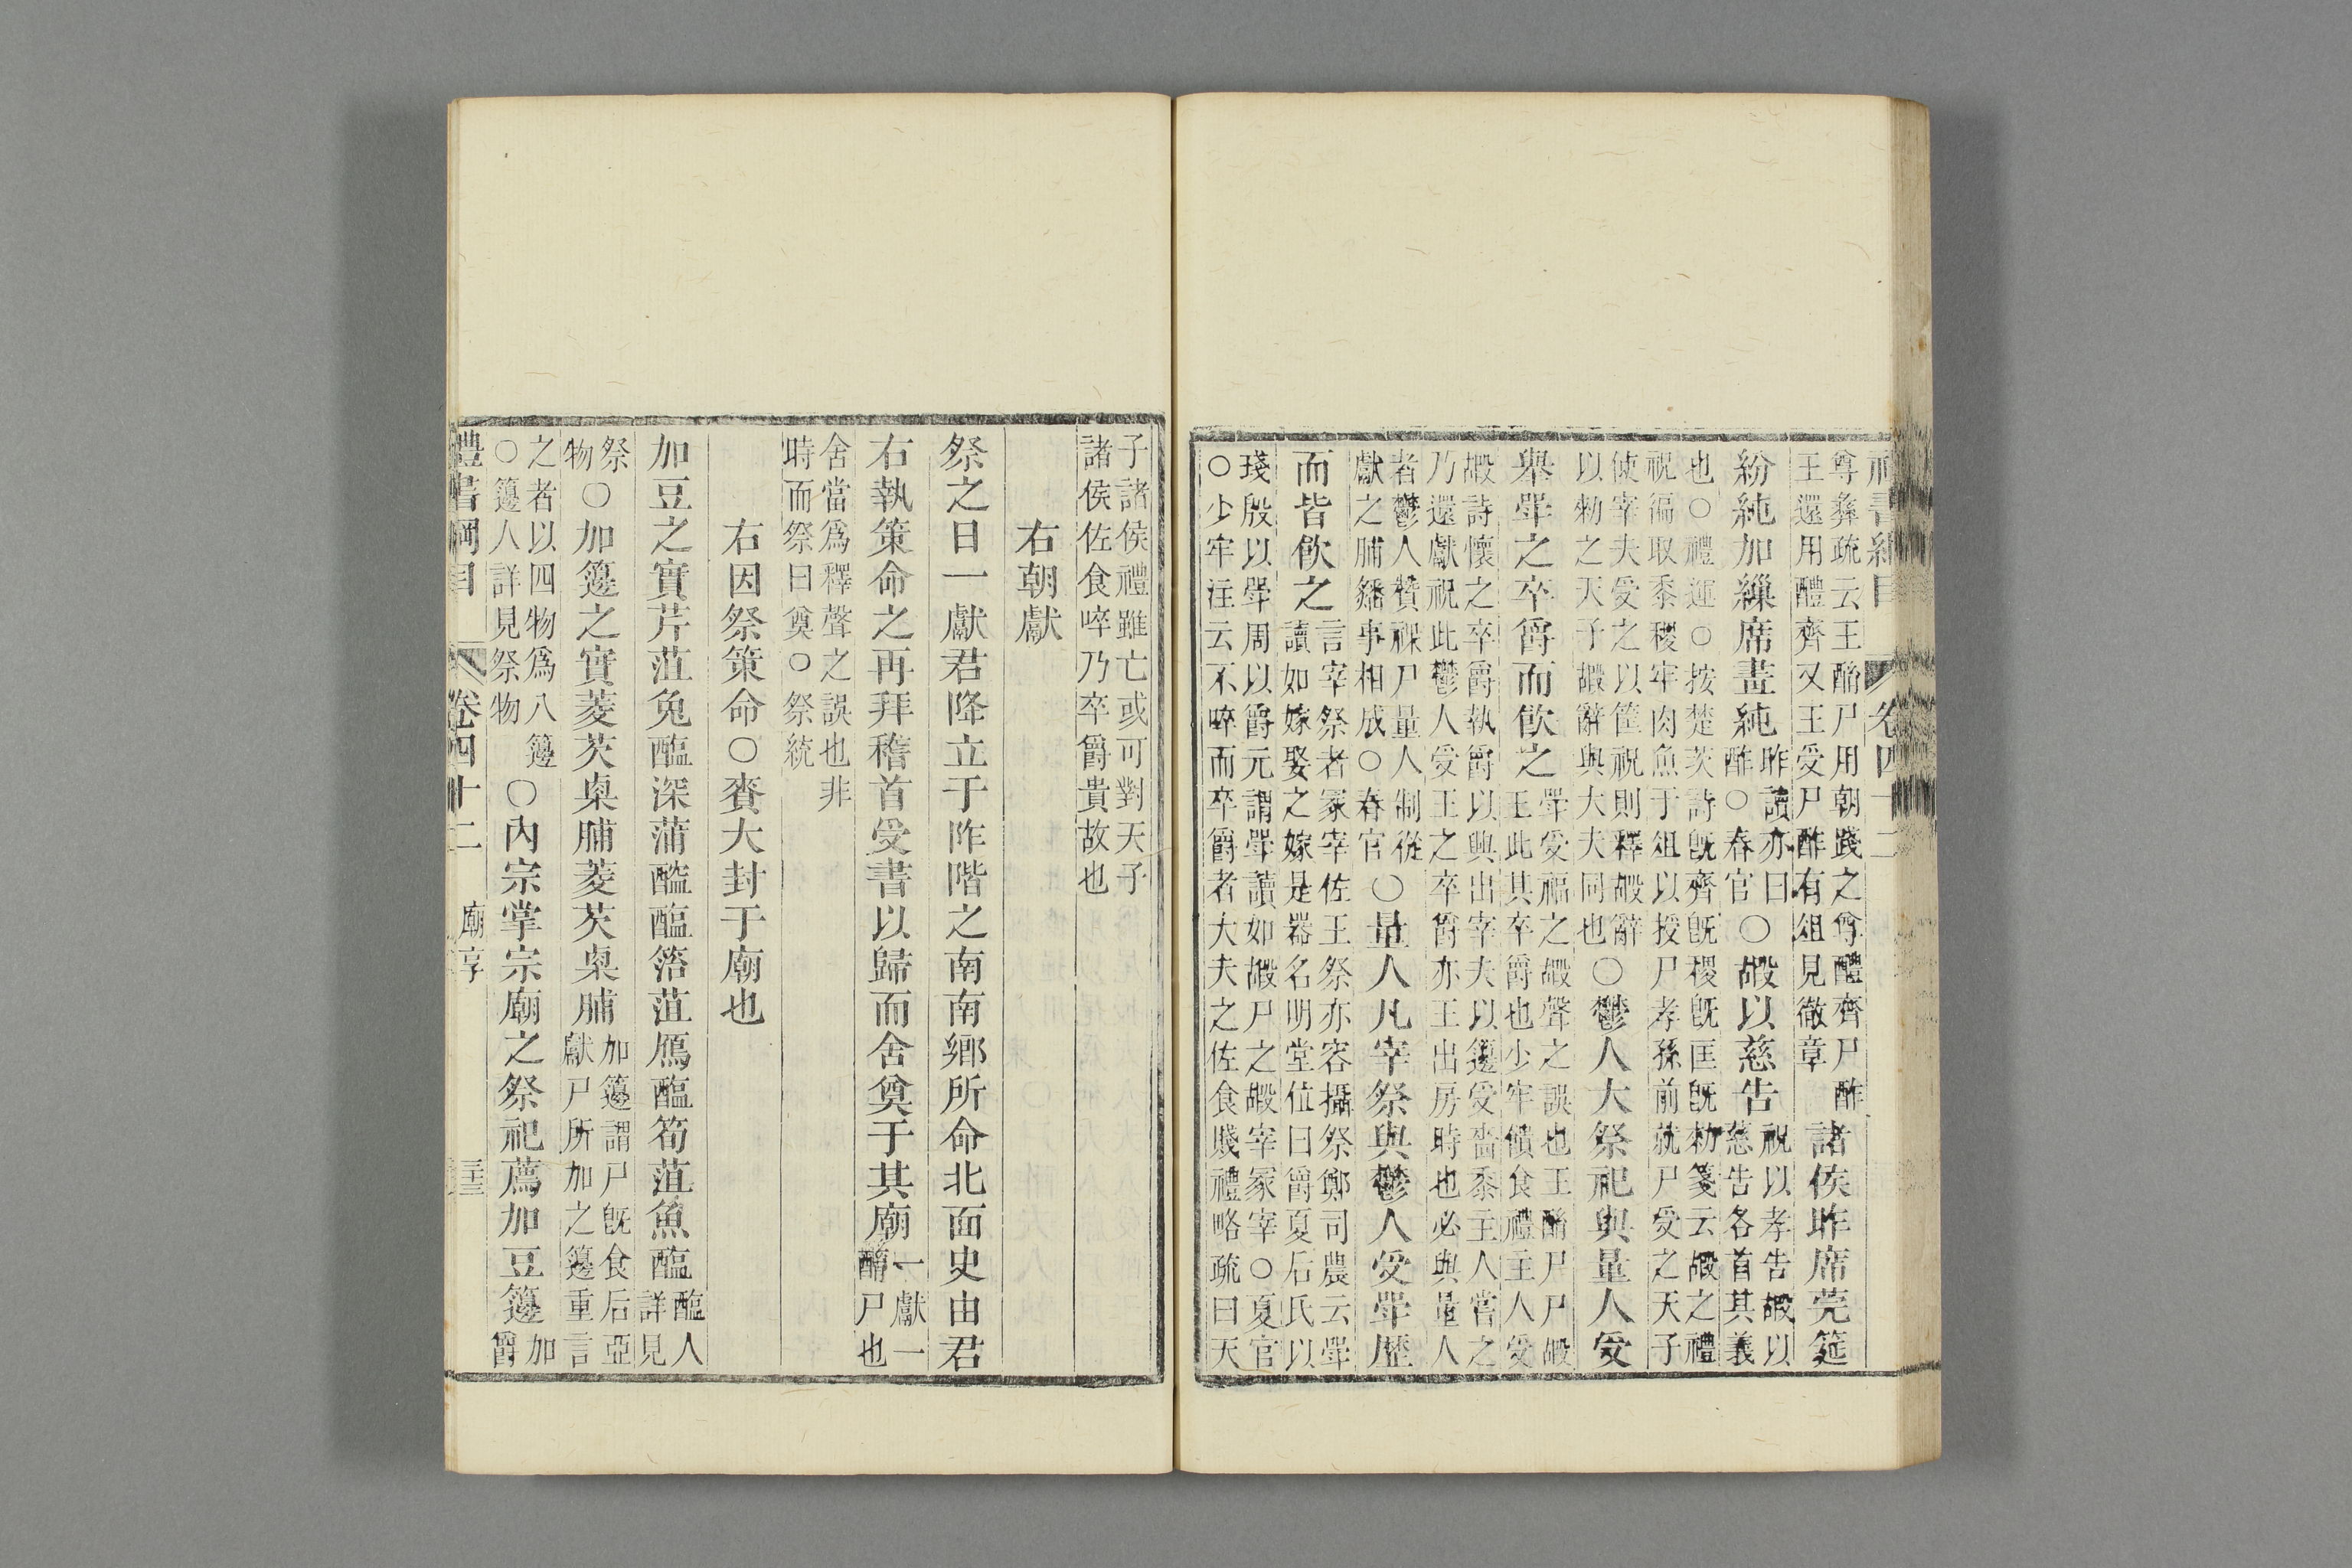 禮書綱目 卷四十二
尊彝疏云王酳尸用朝踐之尊醴齊尸酢
王還用醴齊又王受尸酢有俎見徹章
諸侯昨席莞筵
紛純加繅席畫純
昨讀亦曰
酢○春官
○嘏以慈告
祝以孝告嘏以
慈告各首其義
也○禮運○按楚茨詩既齊既稷既匡既勑箋云嘏之禮
祝徧取黍稷牢肉魚于俎以授尸孝孫前就尸受之天子
使宰夫受之以筐祝則釋嘏辭
以勑之天子嘏辭與大夫同也
○鬱人大祭祀與量人受
舉斝之卒爵而飲之
斝受福之嘏聲之誤也王酳尸尸嘏
王此其卒爵也少牢饋食禮主人受
嘏詩懷之卒爵執爵以興出宰夫以籩受嗇黍主人嘗之
乃還獻祝此鬱人受王之卒爵亦王出房時也必與量人
者鬱人贊祼尸量人制從
獻之脯燔事相成○春官
○量人凡宰祭與鬱人受斝歷
而皆飲之
言宰祭者冢宰佐王祭亦容攝祭鄭司農云斝
讀如嫁娶之嫁是器名明堂位曰爵夏后氏以
琖殷以斝周以爵元謂斝讀如嘏尸之嘏宰冢宰○夏官
○少牢注云不啐而卒爵者大夫之佐食賤禮略疏曰天
子諸侯禮雖亡或可對天子
諸侯佐食啐乃卒爵貴故也
右朝獻
祭之日一獻君降立于阼階之南南鄉所命北面史由君
右執策命之再拜稽首受書以歸而舍奠于其廟
一獻一
酳尸也
舍當爲釋聲之誤也非
時而祭曰奠○祭統
右因祭策命○賚大封于廟也
加豆之實芹菹兔醢深蒲醓醢箈菹鴈醢筍菹魚醢
醢人
詳見
祭
物
○加籩之實菱芡㮚脯菱芡㮚脯
加籩謂尸旣食后亞
獻尸所加之籩重言
之者以四物爲八籩
○籩人詳見祭物
○內宗掌宗廟之祭祀薦加豆籩
加
爵
禮書綱目 卷四十二 廟享 三十三